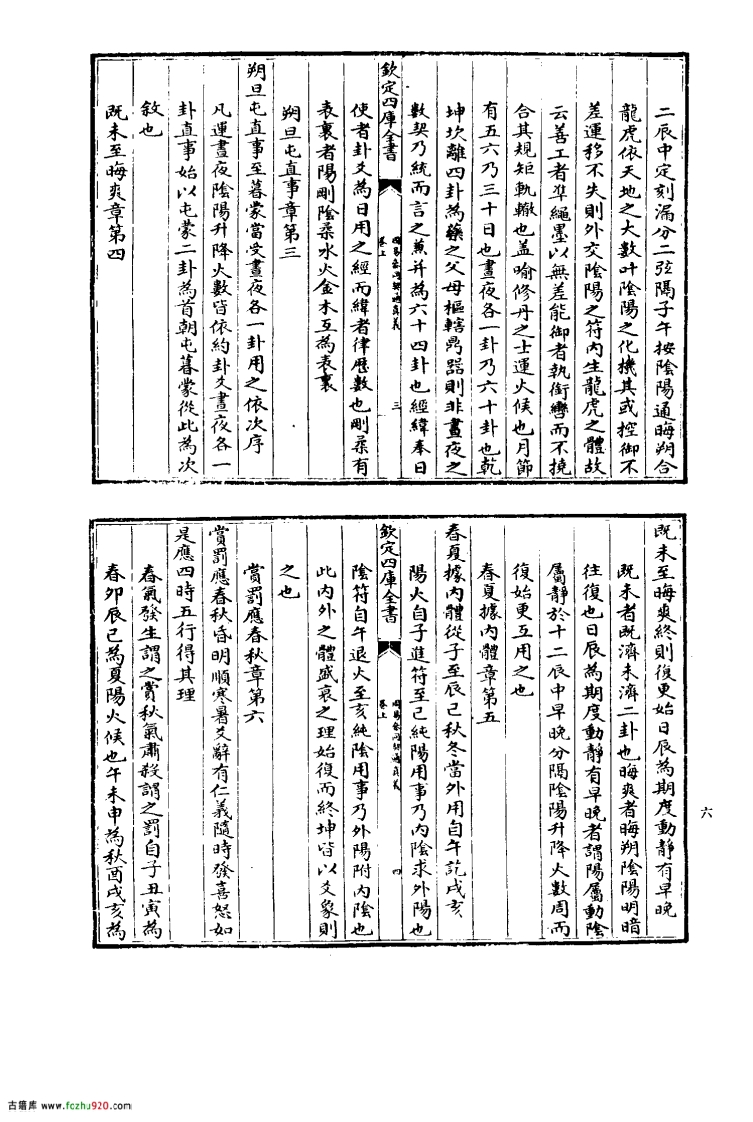 二辰中定刻漏分二弦隔子午按陰陽通晦朔合
龍虎依天地之大數叶陰陽之化機其或控御不
差運移不失則外交陰陽之符内生龍虎之體故
云善工者凖繩墨以無差能御者執銜轡而不撓
合其規矩軌轍也蓋喻修丹之士運火候也月節
有五六乃三十日也晝夜各一卦乃六十卦也乾
坤坎離四卦為藥之父母樞轄鼎器則非晝夜之
數契乃統而言之兼并為六十四卦也經緯奉日
欽定四庫全書
周易參同契通真義
卷上
三
使者卦爻為日用之經而緯者律歷數也剛柔有
表裏者陽剛陰柔水火金木互為表裏
朔旦屯直事章第三
朔旦屯直事至暮蒙當受晝夜各一卦用之依次序
凡運晝夜陰陽升降火數皆依約卦爻晝夜各一
卦直事始以屯蒙二卦為首朝屯暮蒙從此為次
敘也
既未至晦爽章第四
既未至晦爽終則復更始日辰為期度動靜有早晚
既未者既濟未濟二卦也晦爽者晦朔陰陽明暗
往復也日辰為期度動靜有早晚者謂陽屬動陰
屬靜於十二辰中早晚分隔陰陽升降火數周而
復始更互用之也
春夏據内體章第五
春夏據内體從子至辰巳秋冬當外用自午訖戌亥
陽火自子進符至巳純陽用事乃内陰求外陽也
欽定四庫全書
周易參同契通真義
卷上
四
陰符自午退火至亥純陰用事乃外陽附内陰也
此内外之體盛衰之理始復而終坤皆以爻象則
之也
賞罰應春秋章第六
賞罰應春秋昏明順寒暑爻辭有仁義隨時發喜怒如
是應四時五行得其理
春氣發生謂之賞秋氣肅殺謂之罰自子丑寅為
春卯辰巳為夏陽火候也午未申為秋酉戌亥為
六
古籍库 www.fczhu920.com